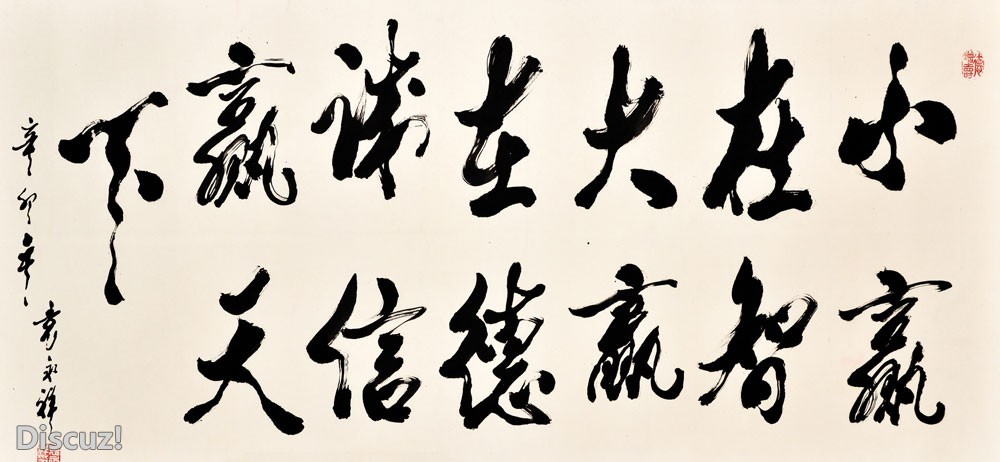 小赢
在智
大赢
在德
诚信
赢天
下
辛卯年
永祥
Discuz!